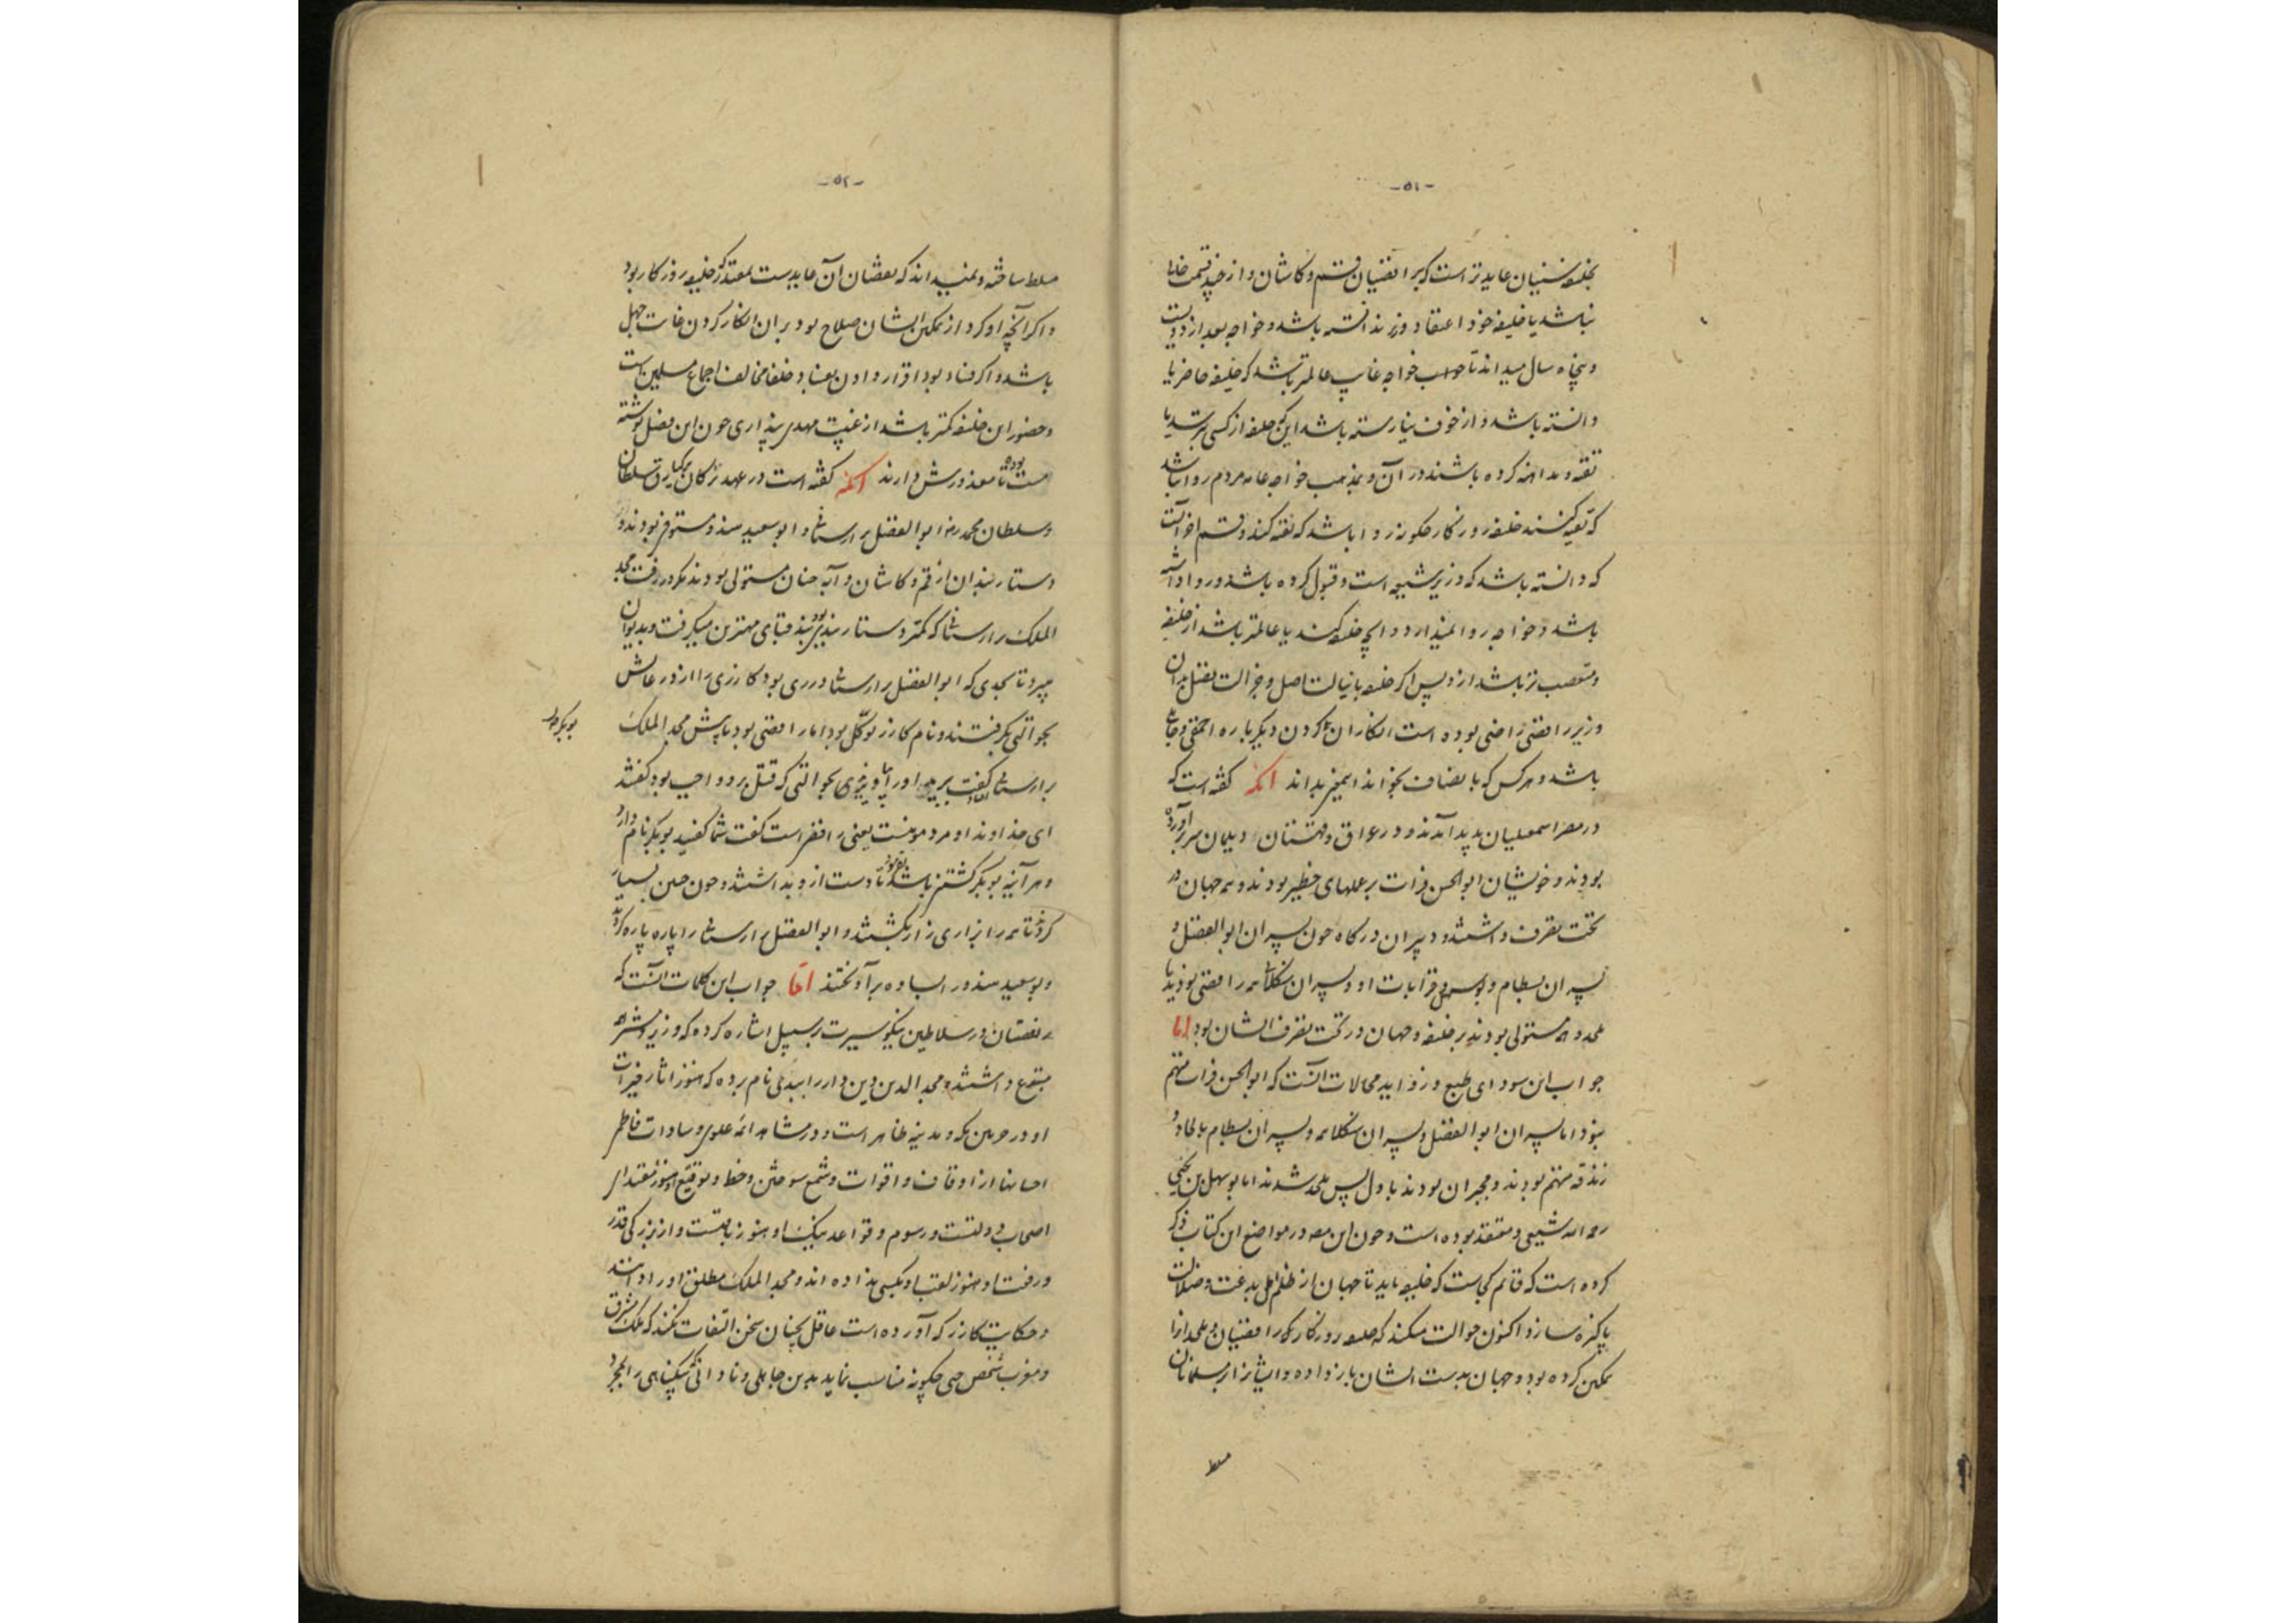 -٥١-
بخلیفه سنیان عایدتر است که برافضیان قم و کاشان و از
نباشد یا خلیفه خود اعتقاد وزیر ندانسته باشد و خواجه بعد از دویست
و پنجاه سال میداند تا خواجه غایب عالمتر باشد که خلیفه حاضر یا
دانسته باشد و از خوف نیارسته باشد این که خلیفه از کسی ترسد یا
تقیه و مداهنه کرده باشند در آن و بمذهب خواجه عامه مردم روا نباشد
که تقیه کنند خلیفه روزگار چگونه روا باشد که تقیه کند و قسم آخر آنست
که دانسته باشد که وزیر شیعی است و قبول کرده باشد و روا داشته
باشد و خواجه روا نمیدارد و آنچه خلیفه کند یا عالمتر باشد از خلیفه
و متعصب تر باشد از و پس اگر خلیفه با نیالت اصل و جزالت فضل بدان
وزیر رافضی راضی بوده است انکار آن کردن دیگر باره احمقی و
باشد و هر کس که بانصاف بخواند این بداند آنکه گفته است که
در مصر اسمعیلیان پدید آمدند و در عراق و قهستان و دیلمان سر برآورده
بودند و خویشان ابوالحسن فرات بر عملهای خطیر بودند و همه جهان در
تحت تصرف داشتند و دبیران درگاه چون پسران ابوالفضل و
پسران بسطام و قرابات او و پسران سنکلا همه رافضی بودند یا
ملحد و همه مستولی بودند بر خلیفه و جهان در تحت تصرف ایشان بود اما
جواب این سودای طبع و زواید محالات آنست که ابوالحسن فرات متهم
نبود اما پسران ابوالفضل و پسران سنکلا همه و پسران بسطام بالحاد و
زندقه متهم بودند و مجبران بودند باول پس ملحد شدند اما بوسهل بن یحیی
رحمه الله شیعی و معتقد بوده است و چون این مصنف در مواضع این کتاب ذکر
کرده است که قائم کجاست که خلیفه باید تا جهان از ظلم اهل بدعت و ضلالت
پاکیزه سازد اکنون حوالت میکند که خلیفه روزگار رافضیان و ملحدان را
تمکین کرده بود و جهان بدست ایشان باز داده و ایشان را بر مسلمانان
مسلط
-٥٢-
مسلط ساخته و نمیداند که نقصان آن عایدست بمقتدر که خلیفه روزگار بود
و اگر آنچه او کرد از تمکین ایشان صلاح بود بر آن انکار کردن غایت جهل
باشد و اگر فساد بود اقرار دادن بفساد خلفا مخالف اجماع مسلمین است
و حضور این خلیفه کمتر باشد از غیبت مهدی پنداری چون این فصل نوشته
مست بوده تا معذورش دارند آنکه گفته است در عهد برکیارق سلطان
و سلطان محمد رضا ابوالفضل براوستانی و ابوسعید هندو مستوفی بودند و
دستاربندان از قم و کاشان و آبه چنان مستولی بودند که
الملک براوستانی که کمتر دستاربندی بود قبای مهترین میگرفت و بدیوان
میبرد تا بحدی که ابوالفضل براوستانی در ری بود کازری را از در عایش
بحوالتی بگرفتند و نام کازر بوبکر بود اما رافضی بود تا پیش مجد الملک
براوستانی گفت ببرید او را بیاویزید بحوالتی که قتل برو واجب بود گفتند
ای خداوند او مردی مؤمنست یعنی رافضی است گفت شما گفتید بوبکر نام دارد
و هر آینه بوبکر کشتنی باشد تا دست از و بداشتند و چون چنین بسیار
کردند تا همه را بزاری زار بکشتند و ابوالفضل براوستانی را پاره پاره کردند
و بوسعید هندو را بساوه برآویختند اما جواب این کلمات آنست که
نقصان در سلاطین نیکو سیرت بر سبیل اشاره کرده که وزیر و مشرف
متبوع داشتند و مجد الدین دین دار را ببدی نام برده که هنوز آثار خیرات
او در حرمین مکه و مدینه ظاهر است و در مشاهد ائمه علوی و سادات فاطمی
احسانها از اوقاف و اقوات و شمع سوختن و خط و توقیع او هنوز مقتدای
اصحاب دولتست و رسوم و قواعد نیک او هنوز باقیست و از بزرگی قدر
و رفعت او هنوز لقب او بکسی نداده اند و مجد الملک مطلق او را دانند
و حکایت کازر که آورده است عاقل بچنان سخن التفات نکند که ملک شرق
و مغرب شخصی چگونه مناسب نماید بدین جاهلی و نادانی که بیگناهی را بمجرد
بوبکر